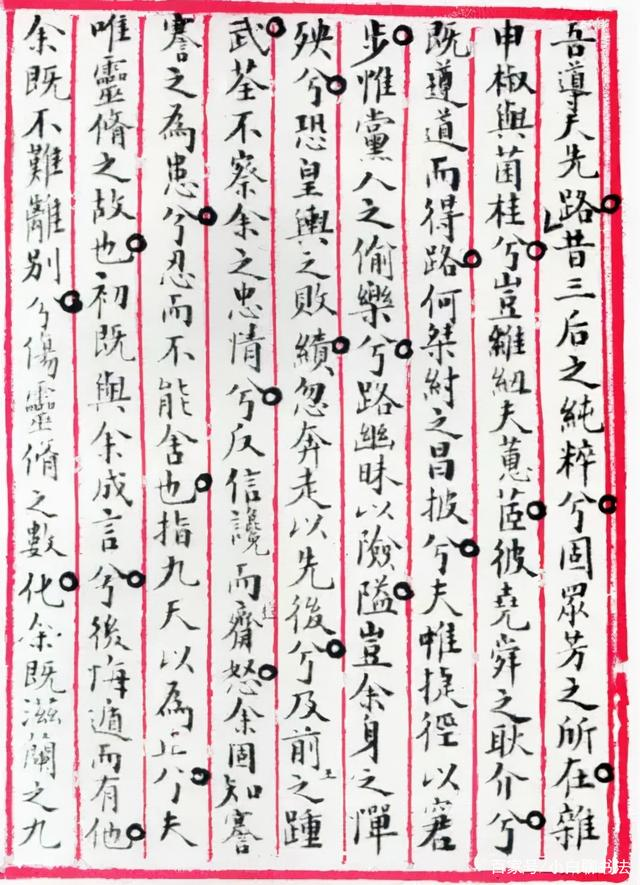 吾導夫先路昔三后之純粹兮固眾芳之所在雜
申椒與菌桂兮豈維紉夫蕙茝彼堯舜之耿介兮
既遵道而得路何桀紂之昌披兮夫唯捷徑以窘
步惟黨人之偷樂兮路幽昧以險隘豈余身之憚
殃兮恐皇輿之敗績忽奔走以先後兮及前王之踵
武荃不察余之忠情兮反信讒而齌怒余固知謇
謇之為患兮忍而不能舍也指九天以為正兮夫
唯靈脩之故也初既與余成言兮後悔遁而有他
余既不難離別兮傷靈脩之數化余既滋蘭之九
百家号/小帛聊书法